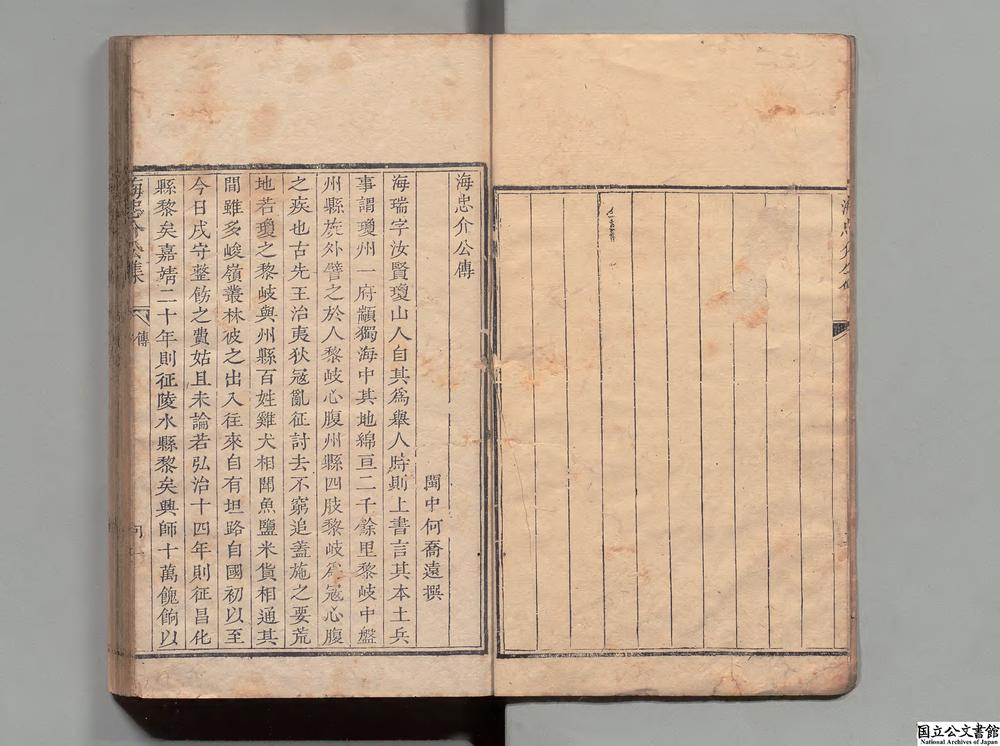 海忠介公傳
閩中何喬遠撰
海瑞字汝賢瓊山人自其爲舉人時則上書言其本土兵
事謂瓊州一府顓獨海中其地綿亘二千餘里黎岐中盤
州縣旋外譬之於人黎岐心腹州縣四肢黎岐爲冦心腹
之疾也古先王治夷狄冦亂征討去不窮追蓋施之要荒
地若瓊之黎岐與州縣百姓雞犬相聞魚鹽米貨相通其
間雖多峻嶺叢林彼之出入往來自有坦路自國初以至
今日戍守整飭之費姑且未論若弘治十四年則征昌化
縣黎矣嘉靖二十年則征陵水縣黎矣興師十萬餽餉以
海忠介公集
傳
国立公文書館
National Archives of Japan